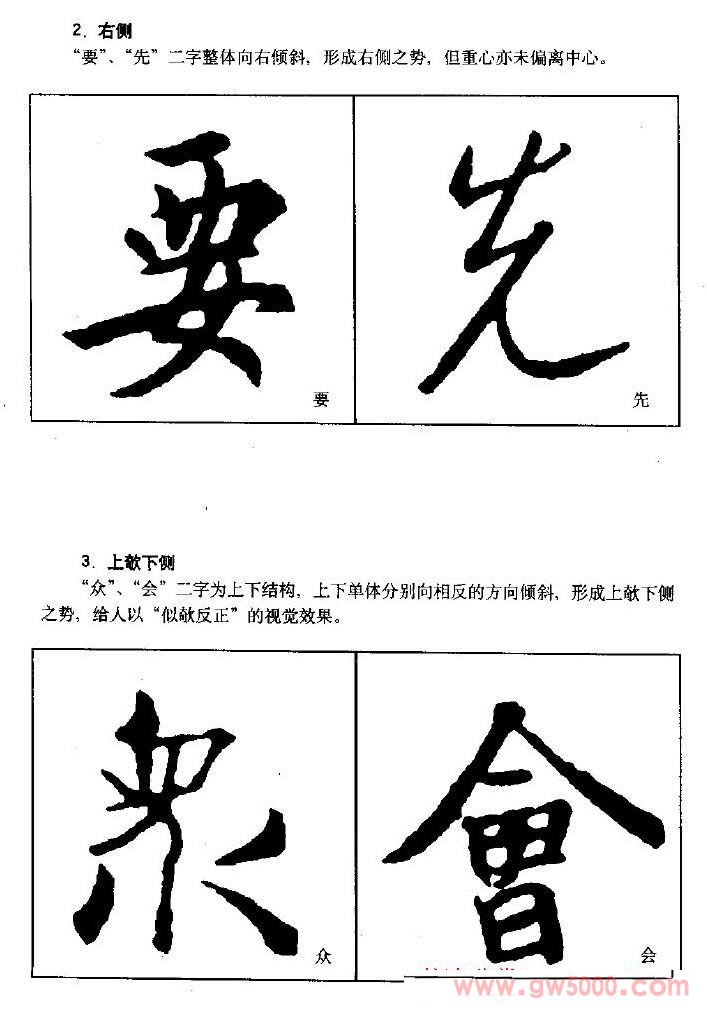 2. 右侧
“要”、“先”二字整体向右倾斜，形成右侧之势，但重心亦未偏离中心。
要 先
要 先
3. 上欹下侧
“众”、“会”二字为上下结构，上下单体分别向相反的方向倾斜，形成上欹下侧
之势，给人以“似欹反正”的视觉效果。
眾 會
众 会
www.gw5000.com